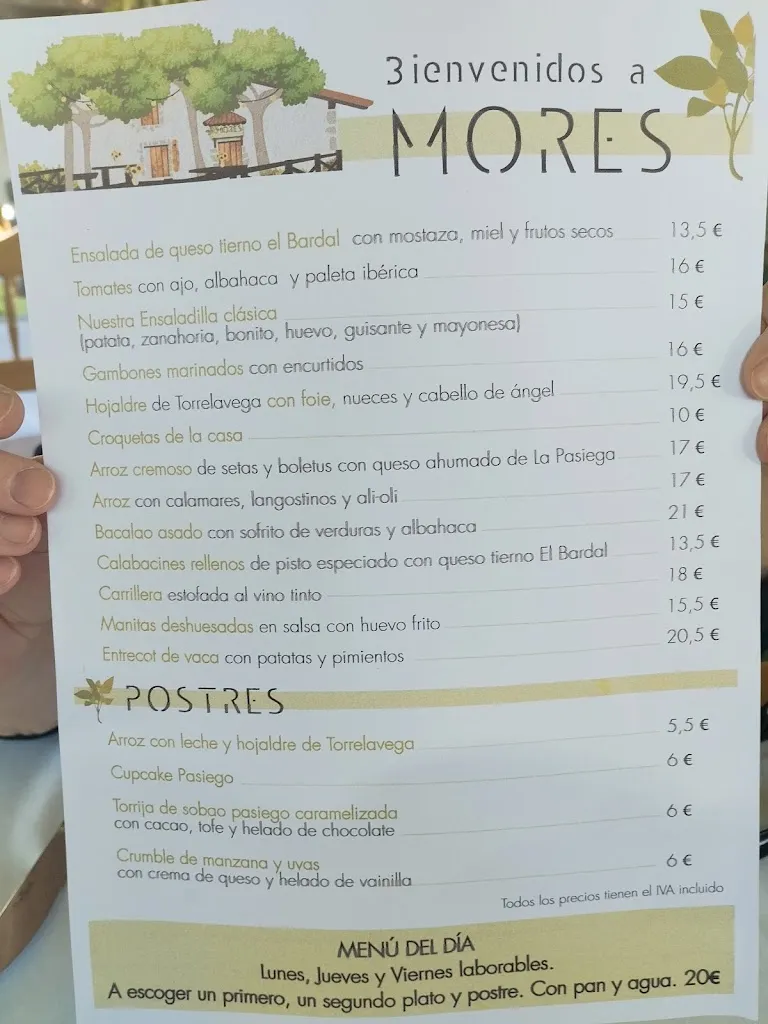 Bienvenidos a
MORES
MORES
Ensalada de queso tierno el Bardal con mostaza, miel y frutos secos 13,5 €
Tomates con ajo, albahaca y paleta ibérica 16 €
Nuestra Ensaladilla clásica 15 €
(patata, zanahoria, bonito, huevo, guisante y mayonesa)
Gambones marinados con encurtidos 16 €
Hojaldre de Torrelavega con foie, nueces y cabello de ángel 19,5 €
Croquetas de la casa 10 €
Arroz cremoso de setas y boletus con queso ahumado de La Pasiega 17 €
Arroz con calamares, langostinos y ali-oli 17 €
Bacalao asado con sofrito de verduras y albahaca 21 €
Calabacines rellenos de pisto especiado con queso tierno El Bardal 13,5 €
Carrillera estofada al vino tinto 18 €
Manitas deshuesadas en salsa con huevo frito 15,5 €
Entrecot de vaca con patatas y pimientos 20,5 €
POSTRES
Arroz con leche y hojaldre de Torrelavega 5,5 €
Cupcake Pasiego 6 €
Torrija de sobao pasiego caramelizada
con cacao, tofe y helado de chocolate 6 €
Crumble de manzana y uvas
con crema de queso y helado de vainilla 6 €
Todos los precios tienen el IVA incluido
MENÚ DEL DÍA
Lunes, Jueves y Viernes laborables.
A escoger un primero, un segundo plato y postre. Con pan y agua. 20€